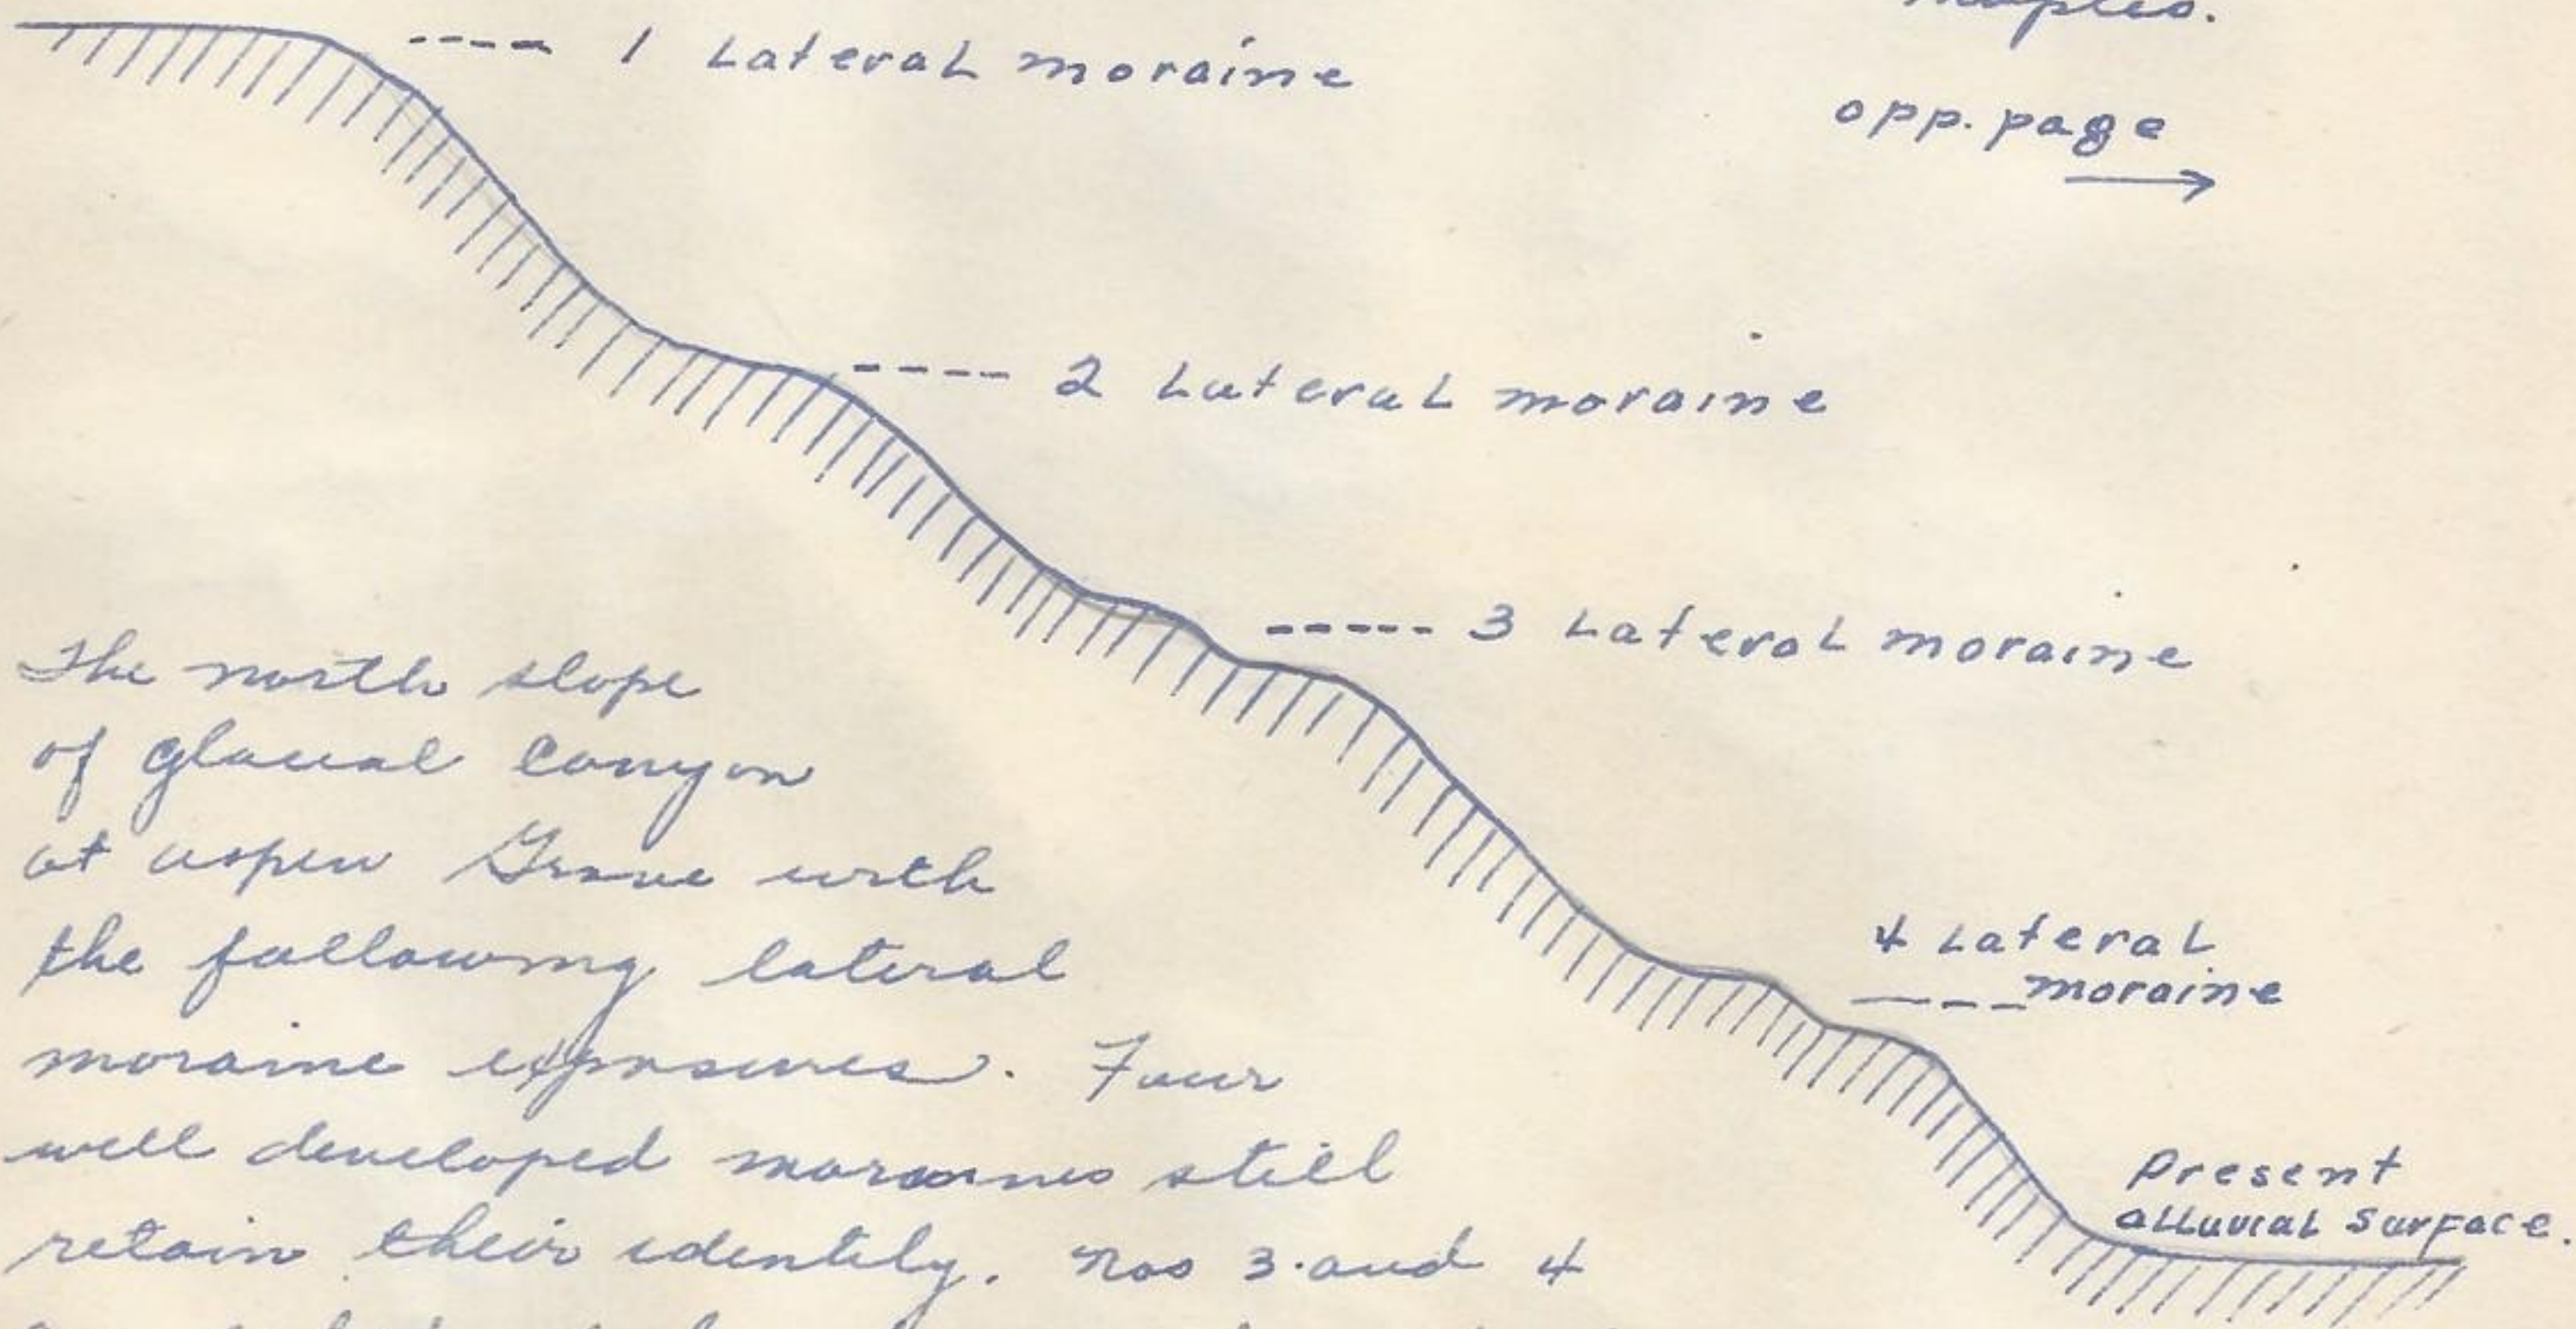 maples.
1 Lateral moraine
opp. page
2 Lateral moraine
3 Lateral moraine
4 Lateral
moraine
Present
alluvial surface.
The north slope
of glacial canyon
at aspen Grove with
the following lateral
moraine exposures. Four
well developed moraines still
retain their identity. Nos 3 and 4